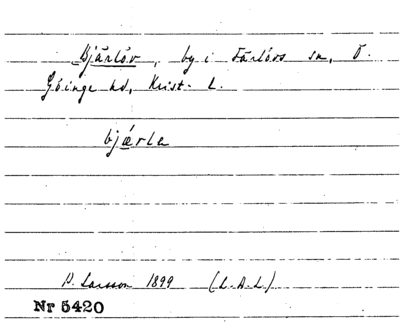 Bjärlöv, by i Färlövs sn, Ö.
Göinge hd, Krist. L.
bjærla
P. Larsson 1899 (L.A.L)
Nr 5420